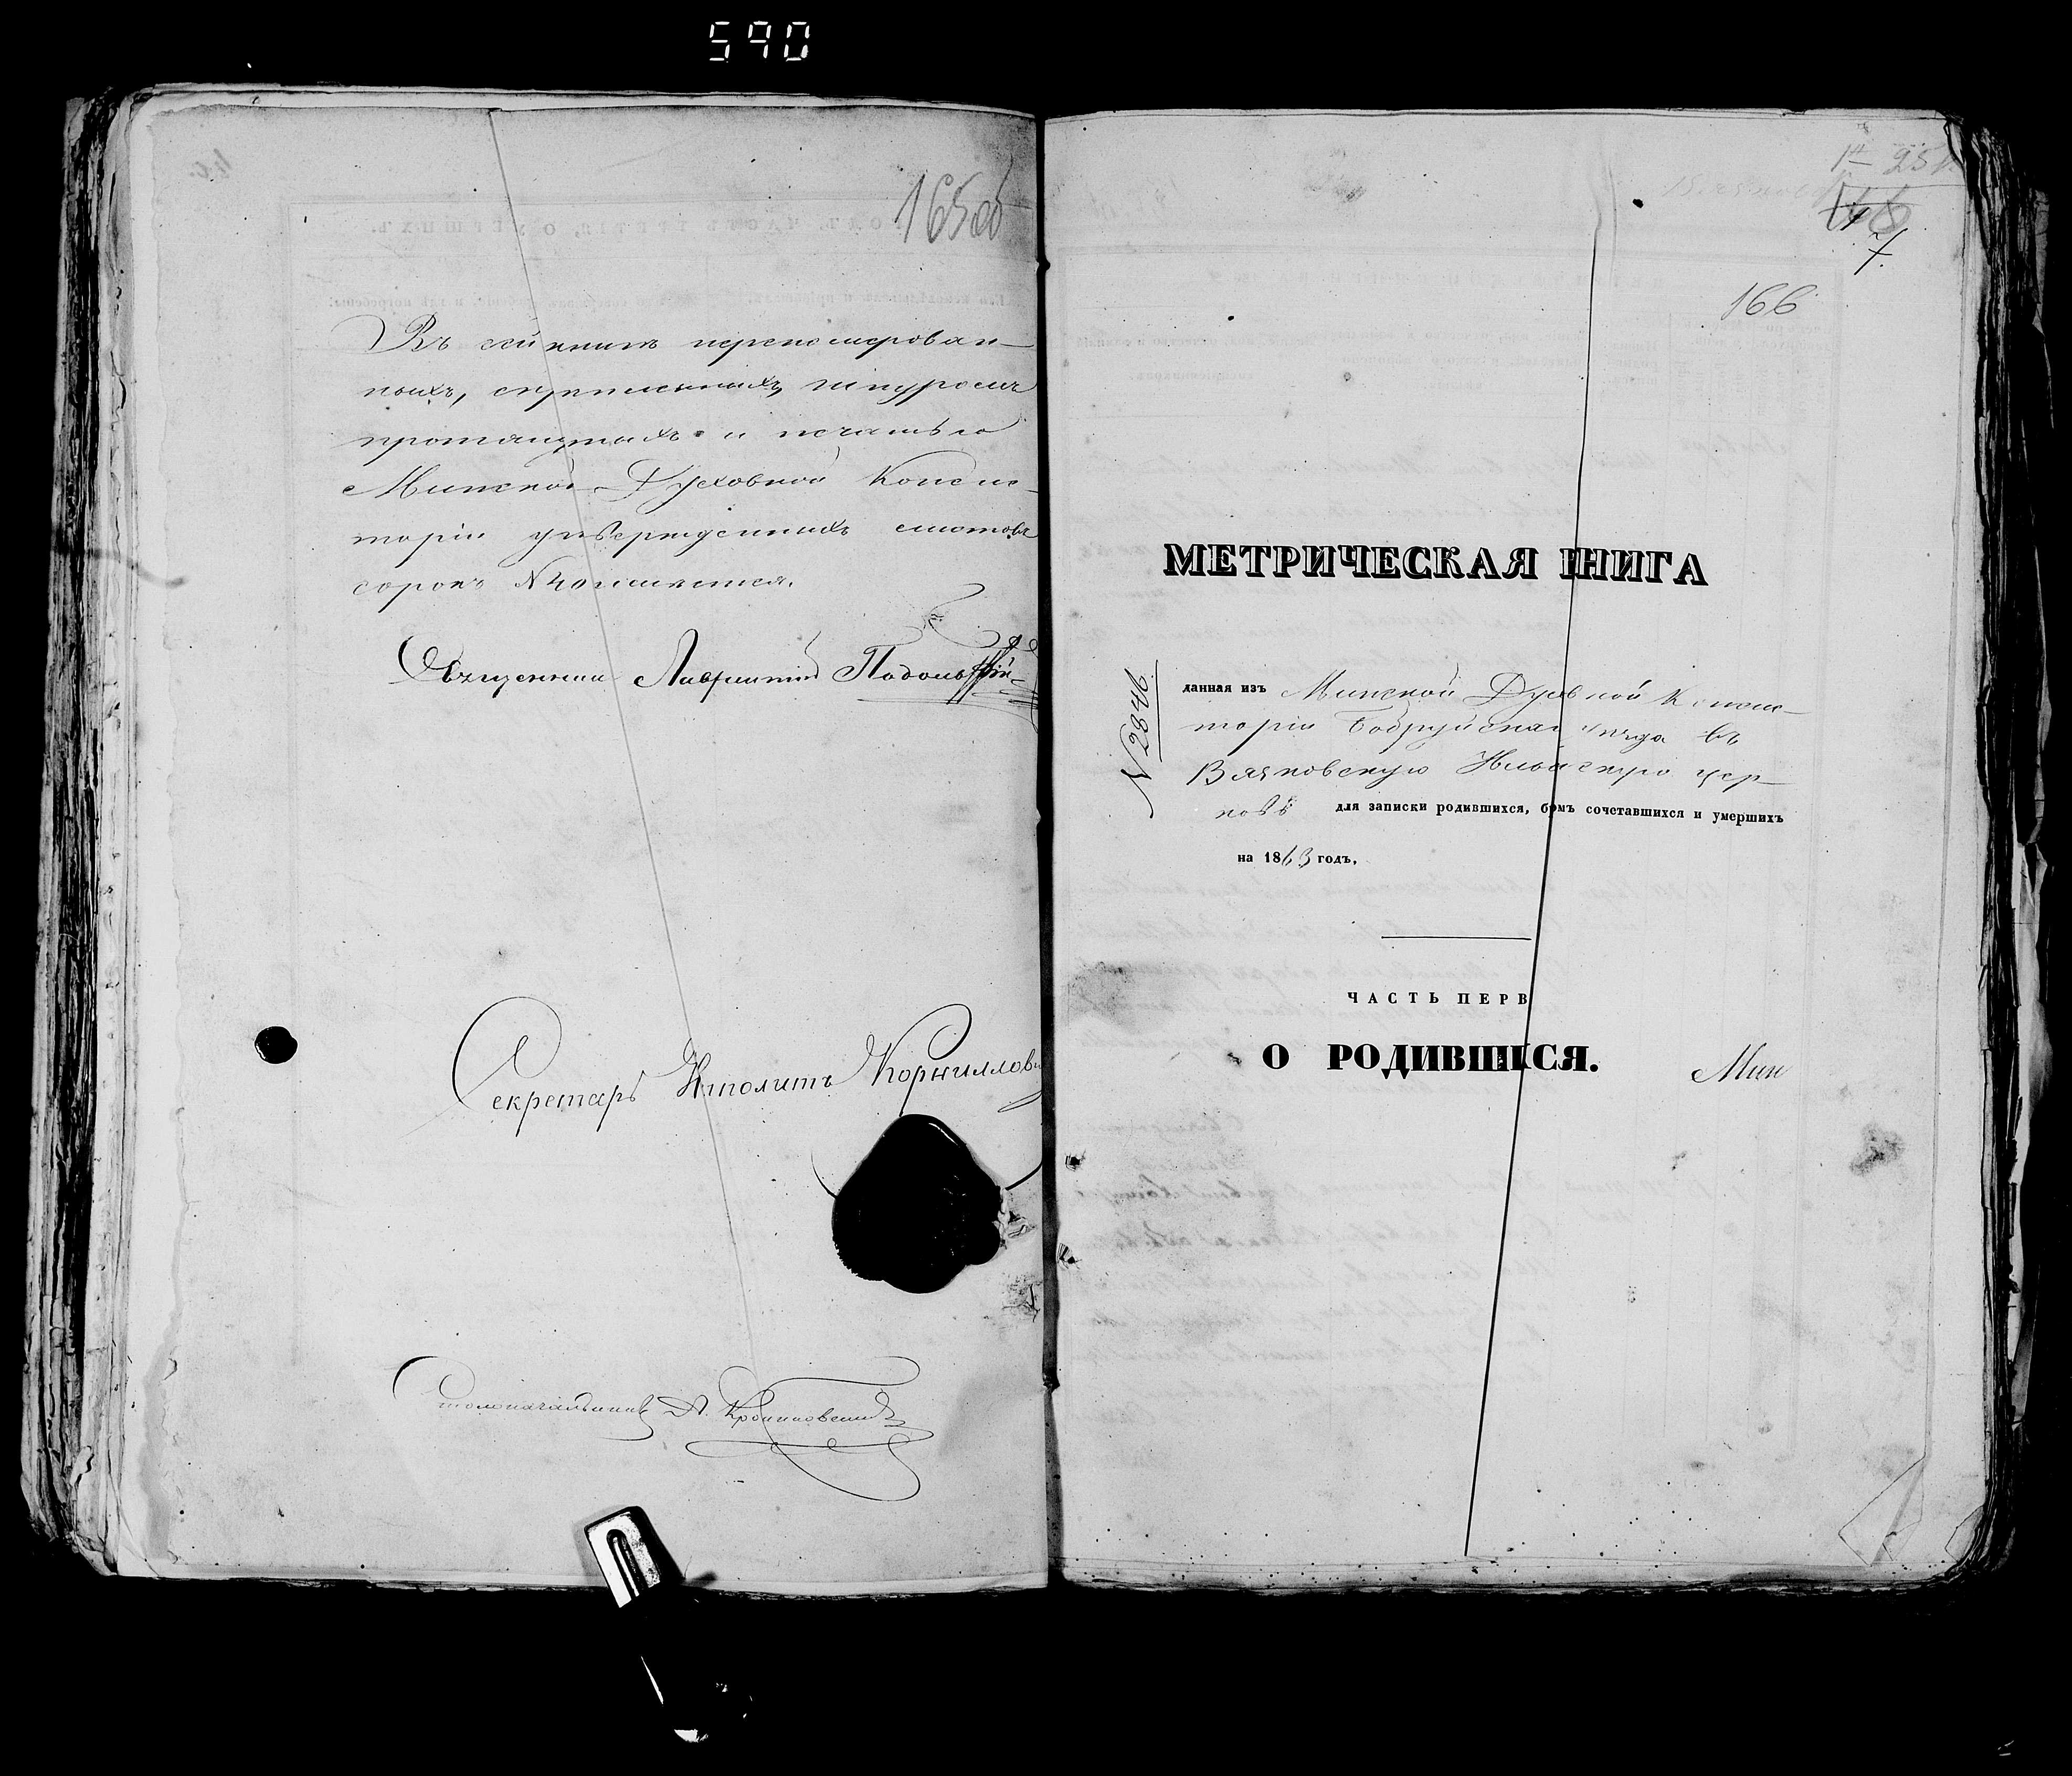 590
165об
Въ сей книгѣ перенумерован-
ныхъ, скрѣпленныхъ, шнуромъ
протянутыхъ и печатью
Минской Духовной Консис-
торіи утвержденныхъ листовъ
сорокъ N 40 имѣется.
Священникъ Лаврентій Подольскій
Секретарь Ипполитъ Корниллов
Столоначальникъ А.
166
7.
МЕТРИЧЕСКАЯ КНИГА
N 2846
данная изъ Минской Духовной Консис-
торіи Бобруйскаго уѣзда въ
Вязковскую Ильинскую цер-
ковь для записки родившихся, бракомъ сочетавшихся и умершихъ
на 1863 годъ,
ЧАСТЬ ПЕРВ
О РОДИВШИХСЯ.
Мин